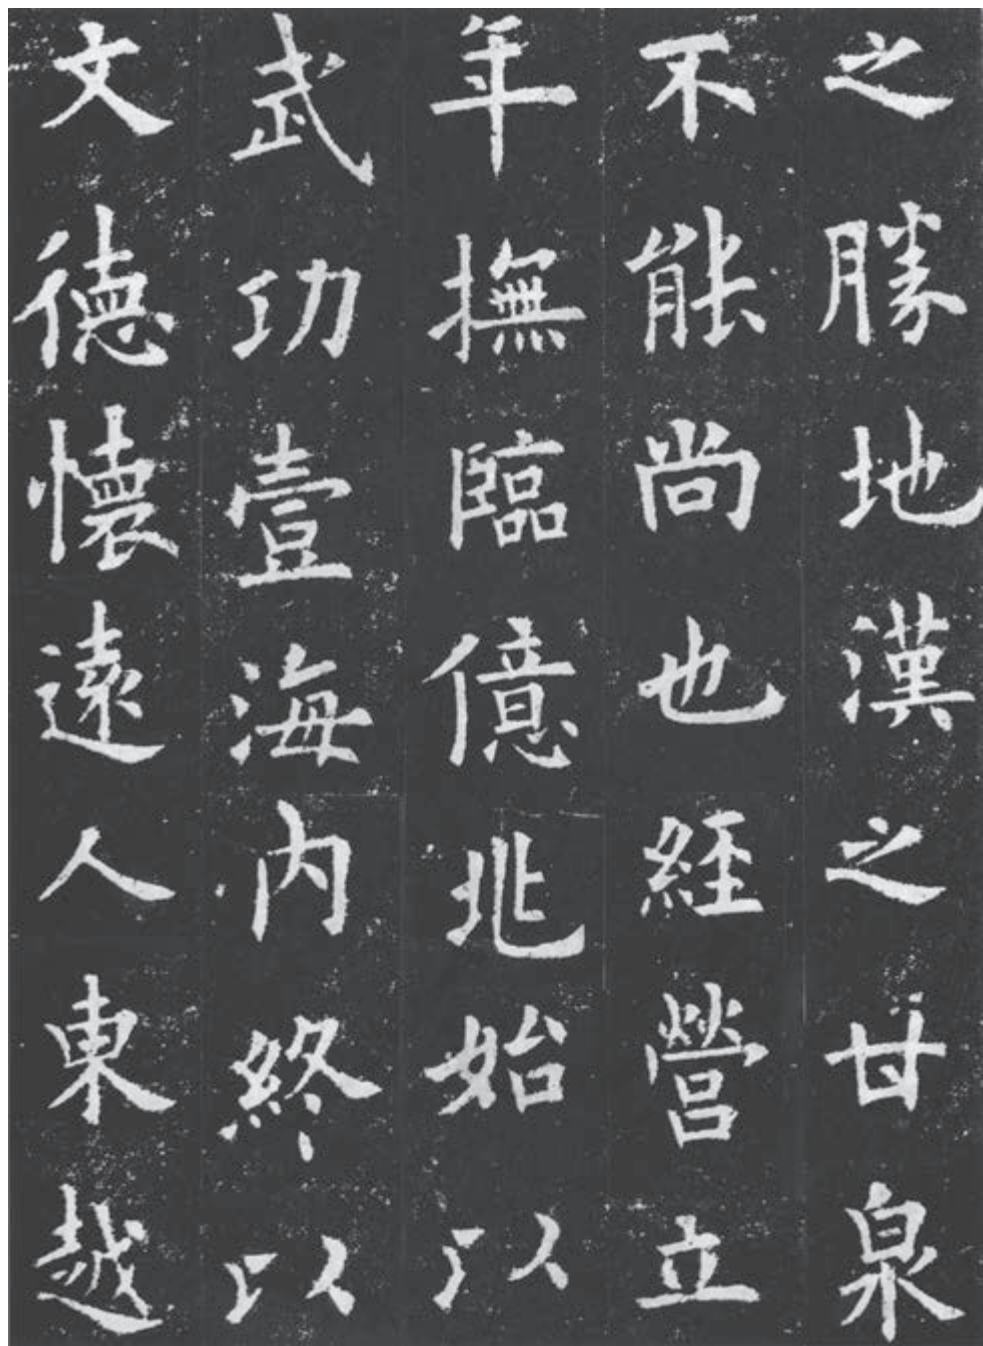 之勝地漢之甘泉
不能尚也經營立
年撫臨億兆始以
武功壹海內終以
文德懷遠人東越